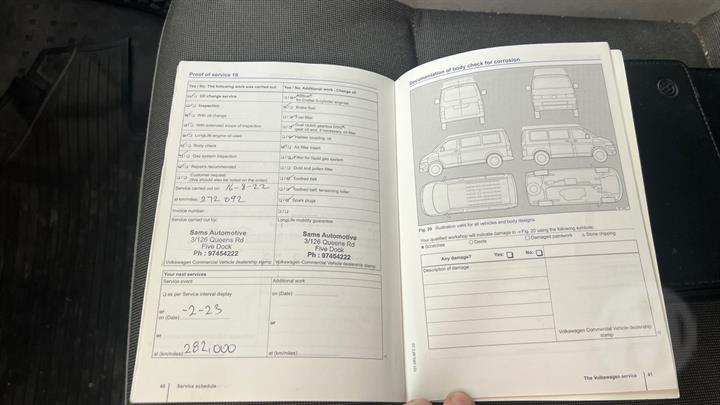 Proof of service 16
Yes / No. The following work was carried out:
Oil change service
Inspection
With oil change
With extended scope of inspection
LongLife engine oil used
Body check
Gas system inspection
Repairs recommended
Customer request
(this should also be noted on the order)
Service carried out on: 16-8-22
at km/miles: 272 092
Invoice number:
Service carried out by:
Sams Automotive
3/126 Queens Rd
Five Dock
Ph : 97454222
Volkswagen Commercial Vehicle dealership stamp
Yes / No. Additional work - Change of:
Brake fluid
Fuel filter
Haldex coupling: oil
Air filter insert
Filter for liquid gas system
Dust and pollen filter
Toothed belt
Toothed belt: tensioning roller
Spark plugs
LongLife mobility guarantee:
Sams Automotive
3/126 Queens Rd
Five Dock
Ph : 97454222
Volkswagen Commercial Vehicle dealership stamp
Your next services
Service event
as per Service interval display
or
on (Date): -2-23
or
at (km/miles): 282,000
Additional work
on (Date):
or
at (km/miles):
40 Service schedule
Documentation of body check for corrosion
Fig. 20 Illustration valid for all vehicles and body designs.
Your qualified workshop will indicate damage in ⇒ Fig. 20 using the following symbols:
Scratches
Dents
Damaged paintwork
Stone chipping
Any damage? Yes: No:
Description of damage:
Volkswagen Commercial Vehicle dealership
stamp
The Volkswagen service 41